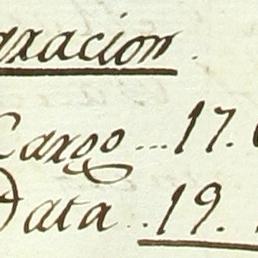 gracion.
Cargo ... 17.
Data .. 19.